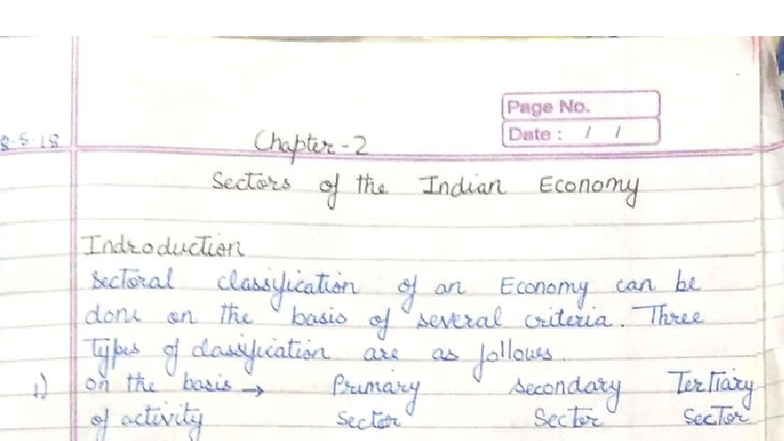 Page No.
Date : / /
8-5-18
Chapter-2
Sectors of the Indian Economy
Indroduction
Sectoral classification of an Economy can be
done on the basis of several criteria. Three
Types of classification are as follows.
1) on the basis → Primary Secondary Tertiary
of activity Sector Sector Sector